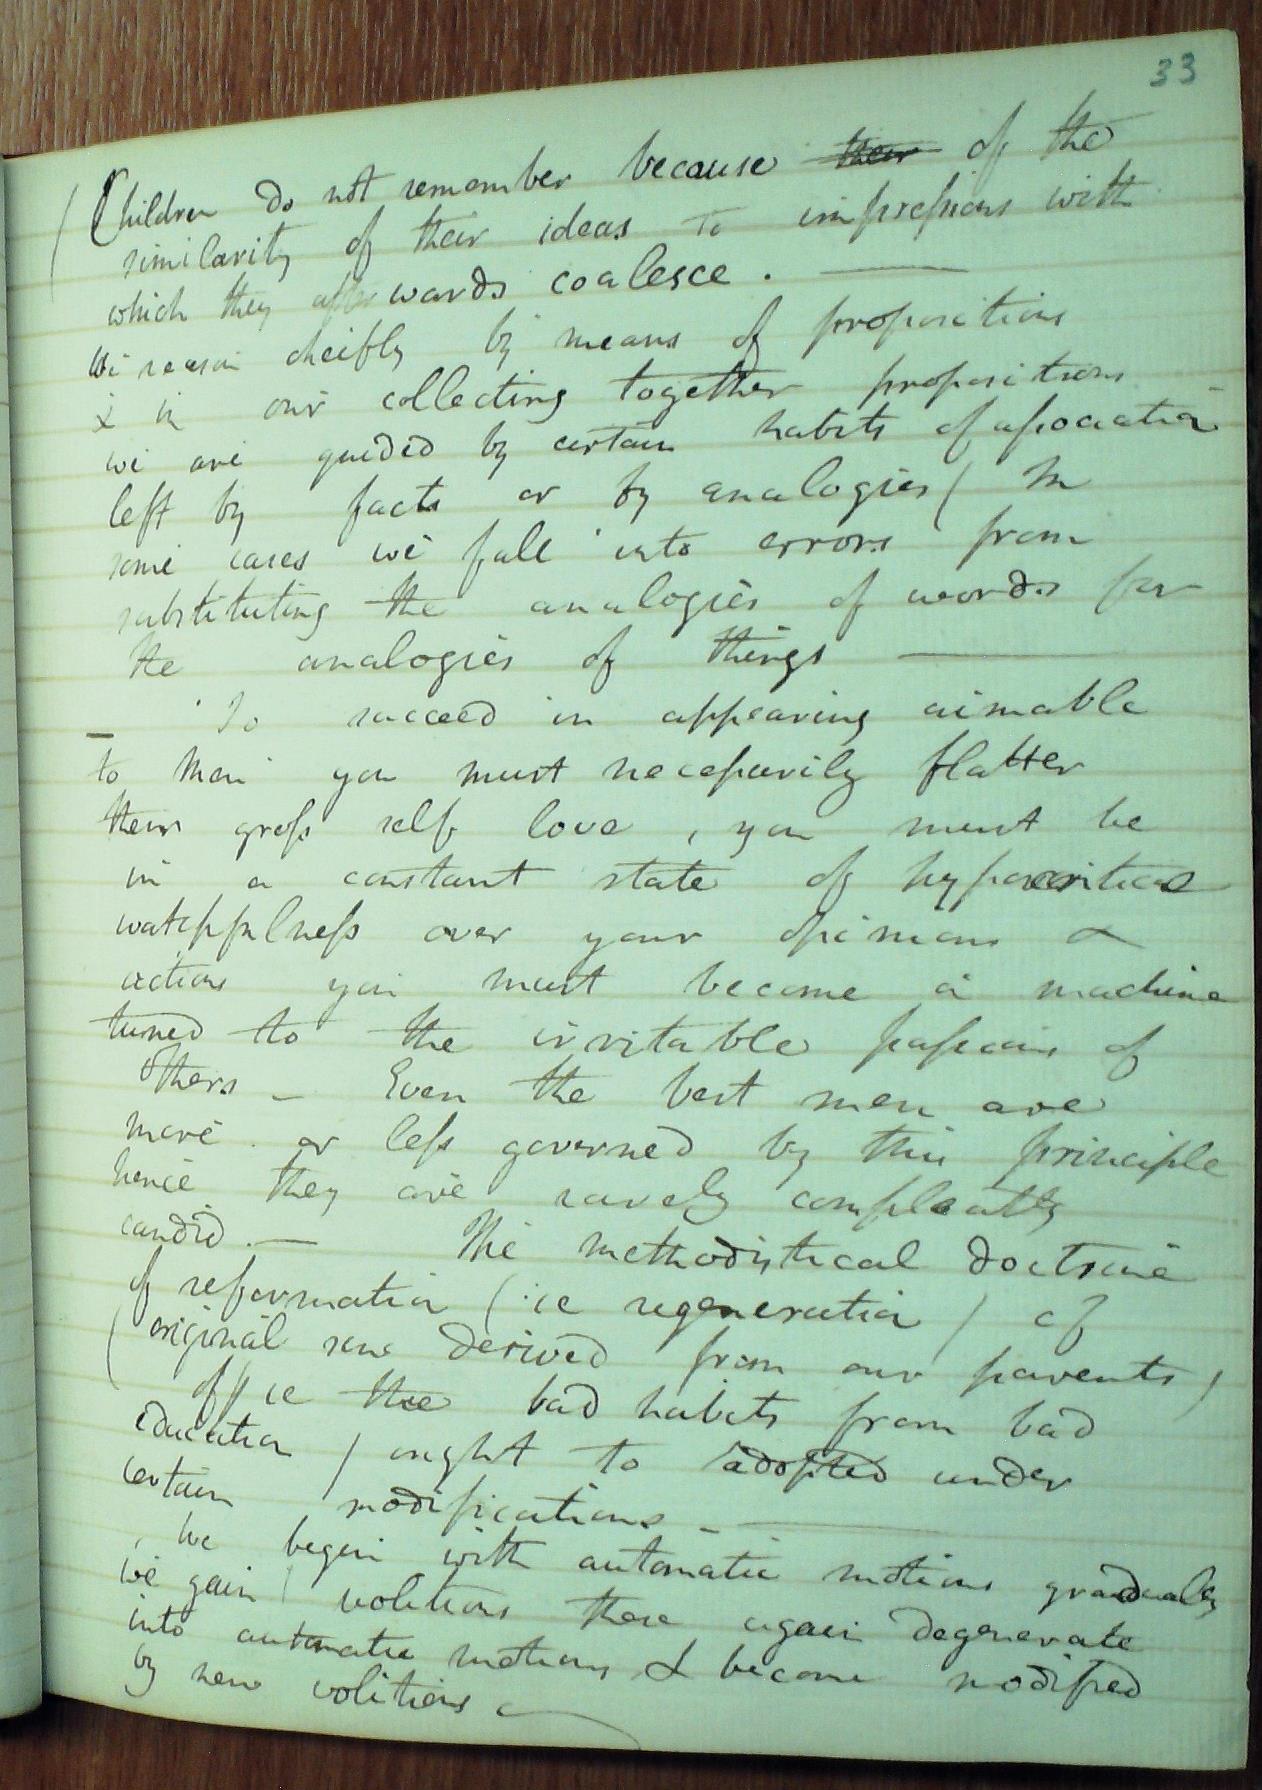 33
( Children do not remember because their of the
similarity of their ideas to impressions with
which they afterwards coalesce . —
We reason cheifly by means of propositions
& in our collecting together propositions
we are guided by certain habits of association
left by facts or by analogies ( In
some cases we fall into errors from
substituting the analogies of words for
the analogies of things —
— To succeed in appearing aimable
to Men you must necessarily flatter
their gross self love , you must be
in a constant state of hypocritical
watchfulness over your opinions &
actions you must become a machine
tuned to the irritable passions of
Others – Even the best men are
more or less governed by this principle
hence they are rarely compleatly
candid . — The methodistical doctrine
of reformation ( ie regeneration ) of
( original sins derived from our parents )
of / ie the bad habits from bad
education / ought to adopted under
certain modifications – —
We begin with automatic motions gradually
we gain volitions these again degenerate
into automatic motions & become modified
by new volitions